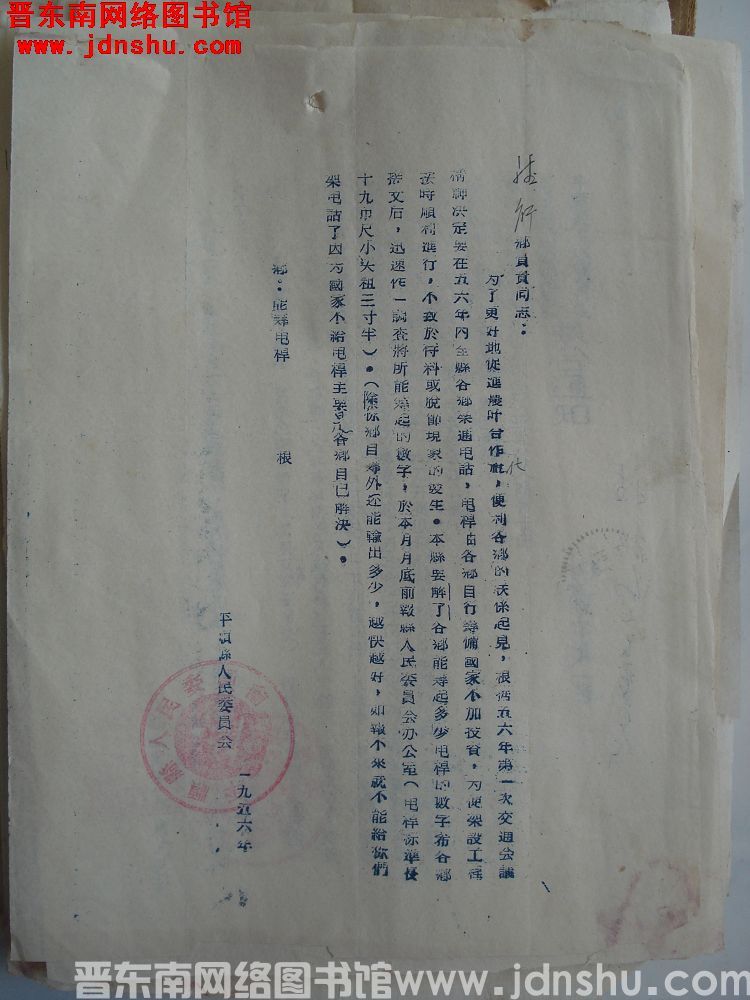 晋东南网络图书馆
www.jdnshu.com
鄉負責同志：
为了更好地促進農叶合作化，便利各鄉的联係起見，根据五六年第一次交通会議
精神决定要在五六年内全縣各鄉架通电話，电桿由各鄉自行籌備國家不加投資，为使架設工程
按時順利進行，不致於待料或脫節現象的發生。本縣要了解各鄉能籌起多少电桿的数字布各鄉
接文后，迅速作一調查將所能籌起的数字，於本月月底前報縣人民委員会办公室（电桿标準長
十九市尺小头粗三寸半）。（除你鄉自籌外还能輸出多少，越快越好，如報不來就不能給你們
架电話了因为國家不給电桿主要是各鄉自已解决）。
鄉：能籌电桿 根
平順縣人民委員会
一九五六年
晋东南网络图书馆www.jdnshu.com